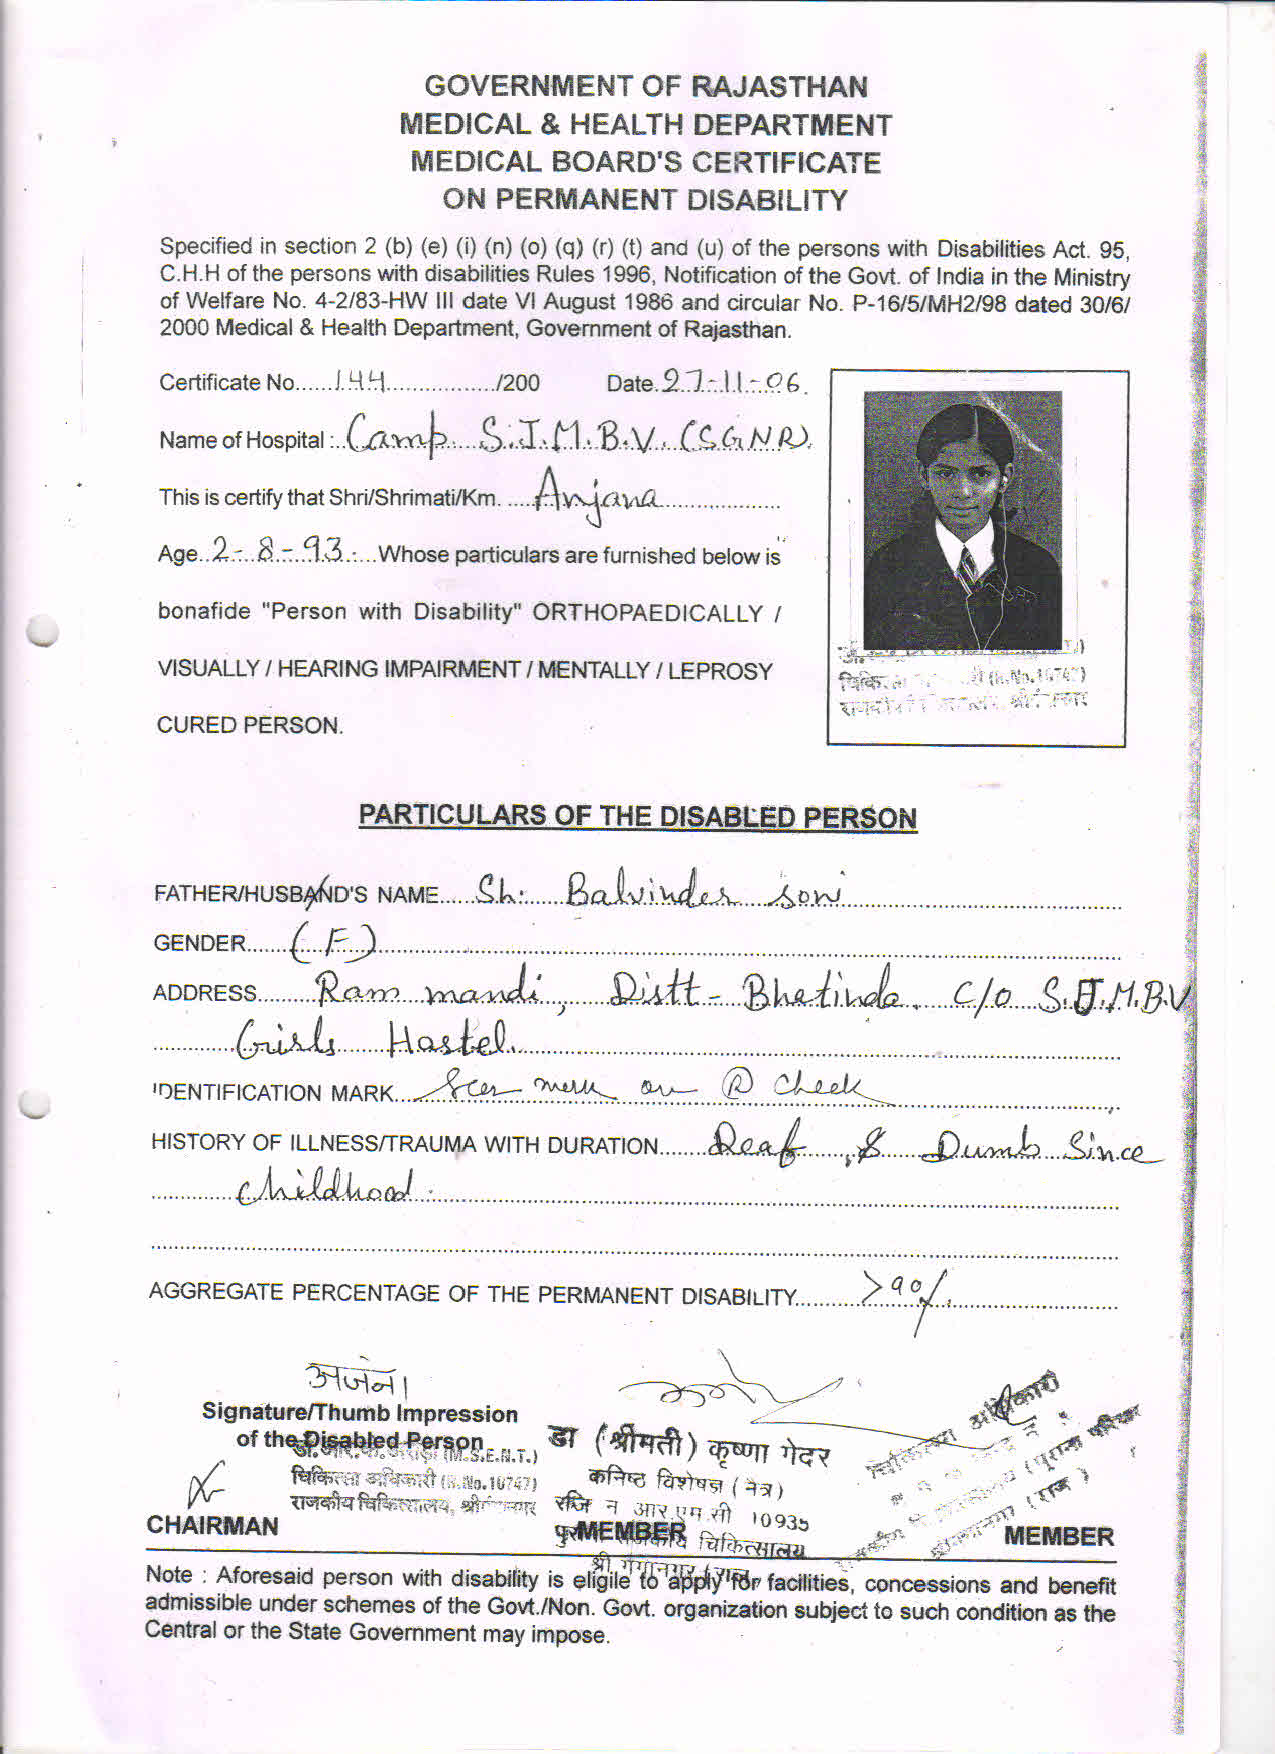 GOVERNMENT OF RAJASTHAN
MEDICAL & HEALTH DEPARTMENT
MEDICAL BOARD'S CERTIFICATE
ON PERMANENT DISABILITY
Specified in section 2 (b) (e) (i) (n) (o) (q) (r) (t) and (u) of the persons with Disabilities Act. 95,
C.H.H of the persons with disabilities Rules 1996, Notification of the Govt. of India in the Ministry
of Welfare No. 4-2/83-HW III date VI August 1986 and circular No. P-16/5/MH2/98 dated 30/6/
2000 Medical & Health Department, Government of Rajasthan.
Certificate No......144................/200 Date..27-11-06.
Name of Hospital :..Camp. S.J.M.B.V. (SGNR).
This is certify that Shri/Shrimati/Km. .....Anjana..................
Age..2-8-93.....Whose particulars are furnished below is
bonafide "Person with Disability" ORTHOPAEDICALLY /
VISUALLY / HEARING IMPAIRMENT / MENTALLY / LEPROSY
CURED PERSON.
चिकि (R.No.10747)
PARTICULARS OF THE DISABLED PERSON
FATHER/HUSBAND'S NAME.....Sh. Balvinder soni
GENDER.......(F)
ADDRESS.........Ram mandi, Distt - Bhatinda. C/o S.J.M.B.V
Girls Hostel.
IDENTIFICATION MARK...Scar mark on (R) Cheek
HISTORY OF ILLNESS/TRAUMA WITH DURATION.......Deaf & Dumb Since
Childhood.
AGGREGATE PERCENTAGE OF THE PERMANENT DISABILITY..........>90%
अजंना
Signature/Thumb Impression
of the Disabled Person
डॉ.आर.के. अरोड़ा (M.S.E.N.T.)
चिकित्सा अधिकारी (R.No.10747)
राजकीय चिकित्सालय, श्रीगंगानगर
CHAIRMAN
डा (श्रीमती) कृष्णा गेदर
कनिष्ठ विशेषज्ञ (नेत्र)
रजि न आर.एम.सी 10935
MEMBER
राजकीय चिकित्सालय
श्री गंगानगर (राज.
चिकित्सा अधिकारी
(पुराना परिसर
(राज)
MEMBER
Note : Aforesaid person with disability is eligile to apply for facilities, concessions and benefit
admissible under schemes of the Govt./Non. Govt. organization subject to such condition as the
Central or the State Government may impose.